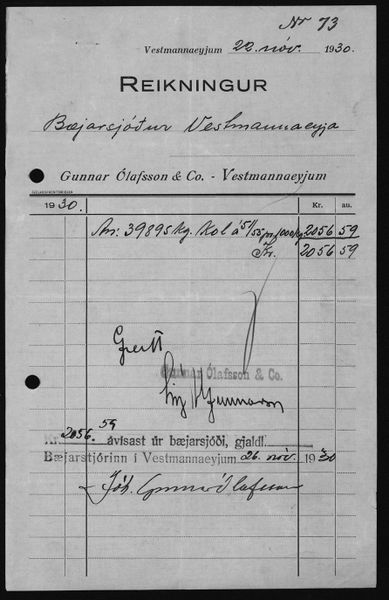 Nr 73
Vestmannaeyjum 22. nóv. 1930.
REIKNINGUR
Bæjarsjóður Vestmannaeyja
Gunnar Ólafsson & Co. - Vestmannaeyjum
1930. Kr. au.
39895 kg. Kol á 51/55 pr. 1000 kg. 2056 59
Kr. 2056 59
Greitt
Gunnar Ólafsson & Co.
Kr. 2056.59 ávísast úr bæjarsjóði, gjaldl.
Bæjarstjórinn í Vestmannaeyjum 26. nóv. 1930
Jóh. Gunnar Ólafsson